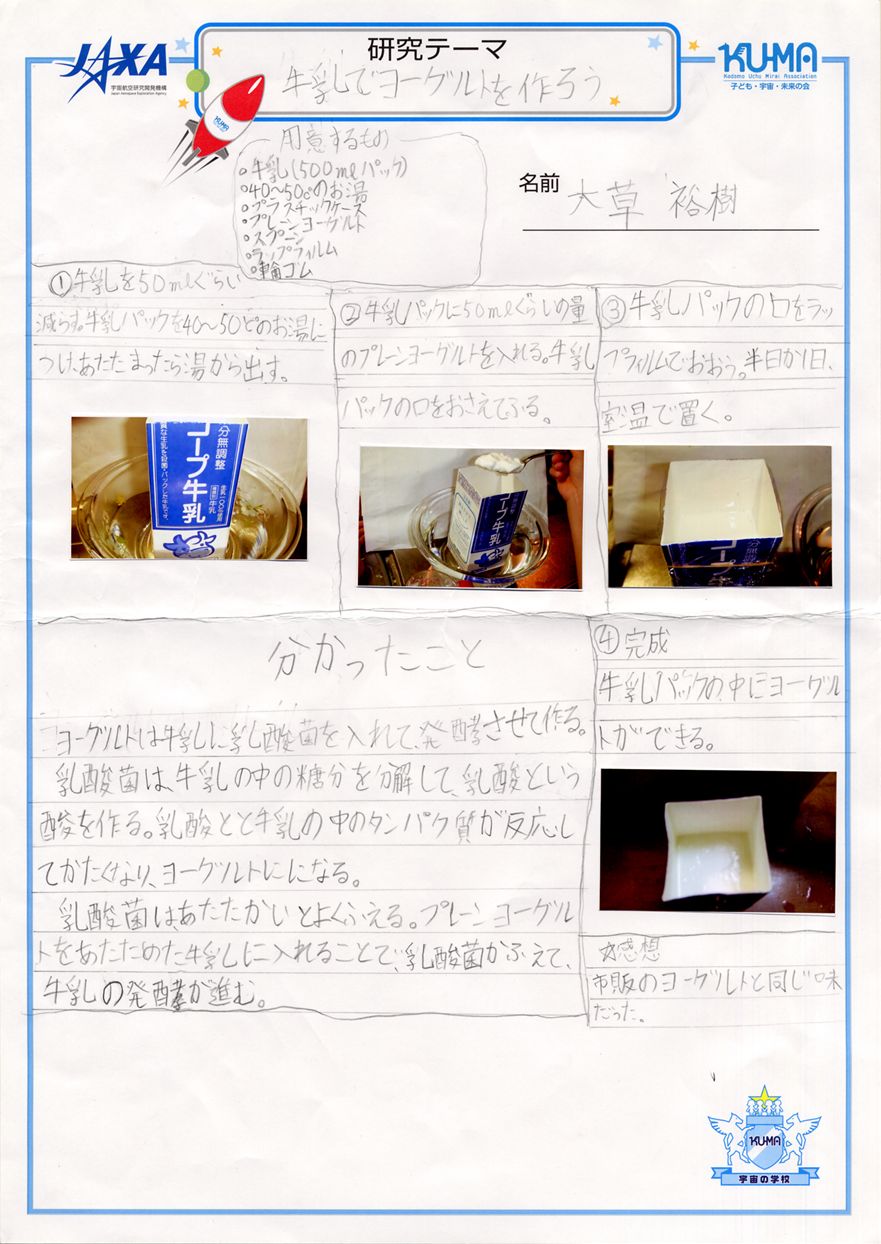 JAXA
宇宙航空研究開発機構
Japan Aerospace Exploration Agency
研究テーマ
牛乳でヨーグルトを作ろう
KU-MA
Kodomo Uchu Mirai Association
子ども・宇宙・未来の会
KU-MA
名前 大草 裕樹
用意するもの
・牛乳(500mlパック)
・40〜50℃のお湯
・プラスチックケース
・プレーンヨーグルト
・スプーン
・ラップフィルム
・輪ゴム
①牛乳を50mlぐらい
減らす。牛乳パックを40〜50どのお湯に
つけ、あたたまったら湯から出す。
分無調整
コープ牛乳
②牛乳パックに50mlぐらいの量
のプレーンヨーグルトを入れる。牛乳
パックの口をおさえてふる。
分無調整
コープ牛乳
③牛乳パックの口をラッ
プフィルムでおおう。半日か1日、
室温で置く。
分無調整
コープ牛乳
分かったこと
ヨーグルトは牛乳に乳酸菌を入れて、発酵させて作る。
乳酸菌は、牛乳の中の糖分を分解して、乳酸という
酸を作る。乳酸とと牛乳の中のタンパク質が反応し
てかたくなり、ヨーグルトにになる。
乳酸菌は、あたたかいとよくふえる。プレーンヨーグル
トをあたためた牛乳に入れることで、乳酸菌がふえて、
牛乳の発酵が進む。
④完成
牛乳パックの中にヨーグル
トができる。
☆感想
市販のヨーグルトと同じ味
だった。
KU-MA
宇宙の学校